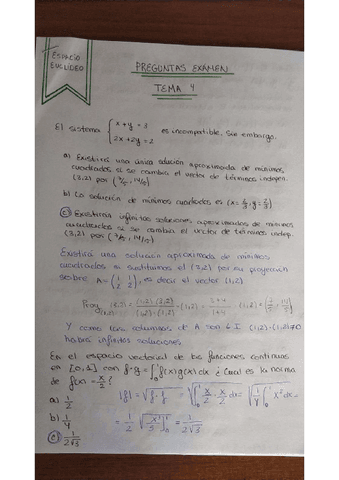 ESPACIO
EUCLÍDEO
PREGUNTAS EXAMEN
TEMA 4
El sistema { x+y = 3
2x+2y = 2 es incompatible, sin embargo:
a) Existirá una única solución aproximada de mínimos
cuadrados si se cambia el vector de términos indepen.
(3,2) por (7/5, 14/5)
b) La solución de mínimos cuadrados es
c) Existirán infinitas soluciones aproximadas de mínimos
cuadrados si se cambia el vector de términos indep.
(3,2) por (7/5, 14/5)
Existirá una solución aproximada de mínimos
cuadrados si sustituimos el (3,2) por su proyección
sobre A = (1 1
2 2), es decir el vector (1,2)
(1,2)·(3,2)
(1,2)·(1,2) ·(1,2) = 3+4
1+4 (1,2) = (7/5, 14/5)
Y como las columnas de A son
habrá infinitas soluciones
En el espacio vectorial de las funciones continuas
en [0,1] con f·g = ∫₀¹ f(x)g(x)dx ¿Cuál es la norma
de f(x) = x/2?
a) 1/2
‖f‖ = √(f·f) = √(∫₀¹ x/2 · x/2 dx) = √(1/4 ∫₀¹ x² dx) =
b) 1/4
= 1/2 √(x³/3]₀¹) = 1/(2√3)
c) 1/(2√3)